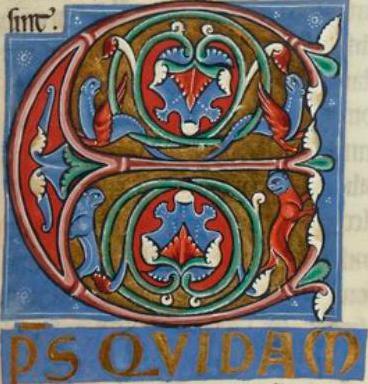 sint.
E
P̄S QVIDAM